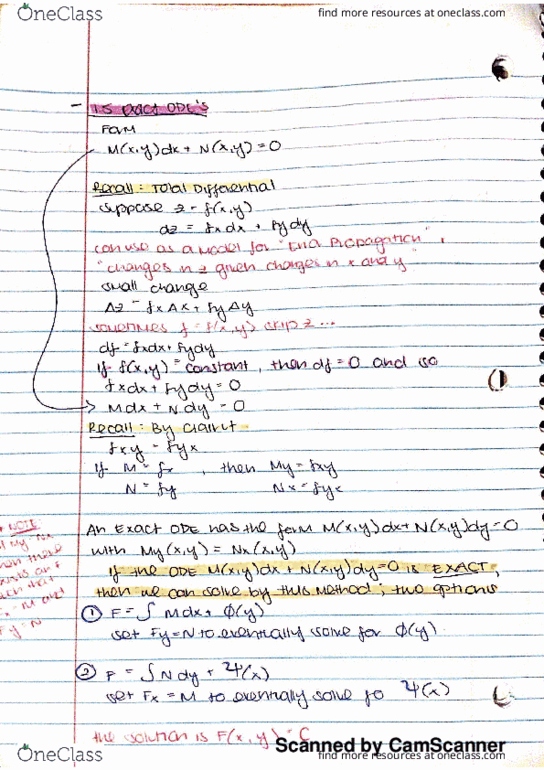 OneClass
find more resources at oneclass.com
- 1.5 EXACT ODE's
Form
M(x,y)dx + N(x,y) = 0
Recall: Total Differential
suppose z = f(x,y)
dz = fx dx + fy dy
can use as a model for "Propagation",
"changes in z given changes in x and y"
small change
Δz = fxΔx + fyΔy
sometimes f = f(x,y) skip z...
df = fxdx + fydy
If f(x,y) = constant, then df = 0 and so
fxdx + fydy = 0
Mdx + Ndy = 0
Recall: By
fxy = fyx
If M = fx, then My = fxy
N = fy Nx = fyx
NOTE:
An Exact ODE has the form M(x,y)dx + N(x,y)dy = 0
with My(x,y) = Nx(x,y)
If the ODE M(x,y)dx + N(x,y)dy = 0 is EXACT,
then we can solve by this method; two options
① F = ∫ Mdx + φ(y)
set Fy = N to eventually solve for φ(y)
② F = ∫ N dy + Ψ(x)
set Fx = M to eventually solve fo Ψ(x)
the solution is F(x,y) = C
Scanned by CamScanner
OneClass
find more resources at oneclass.com